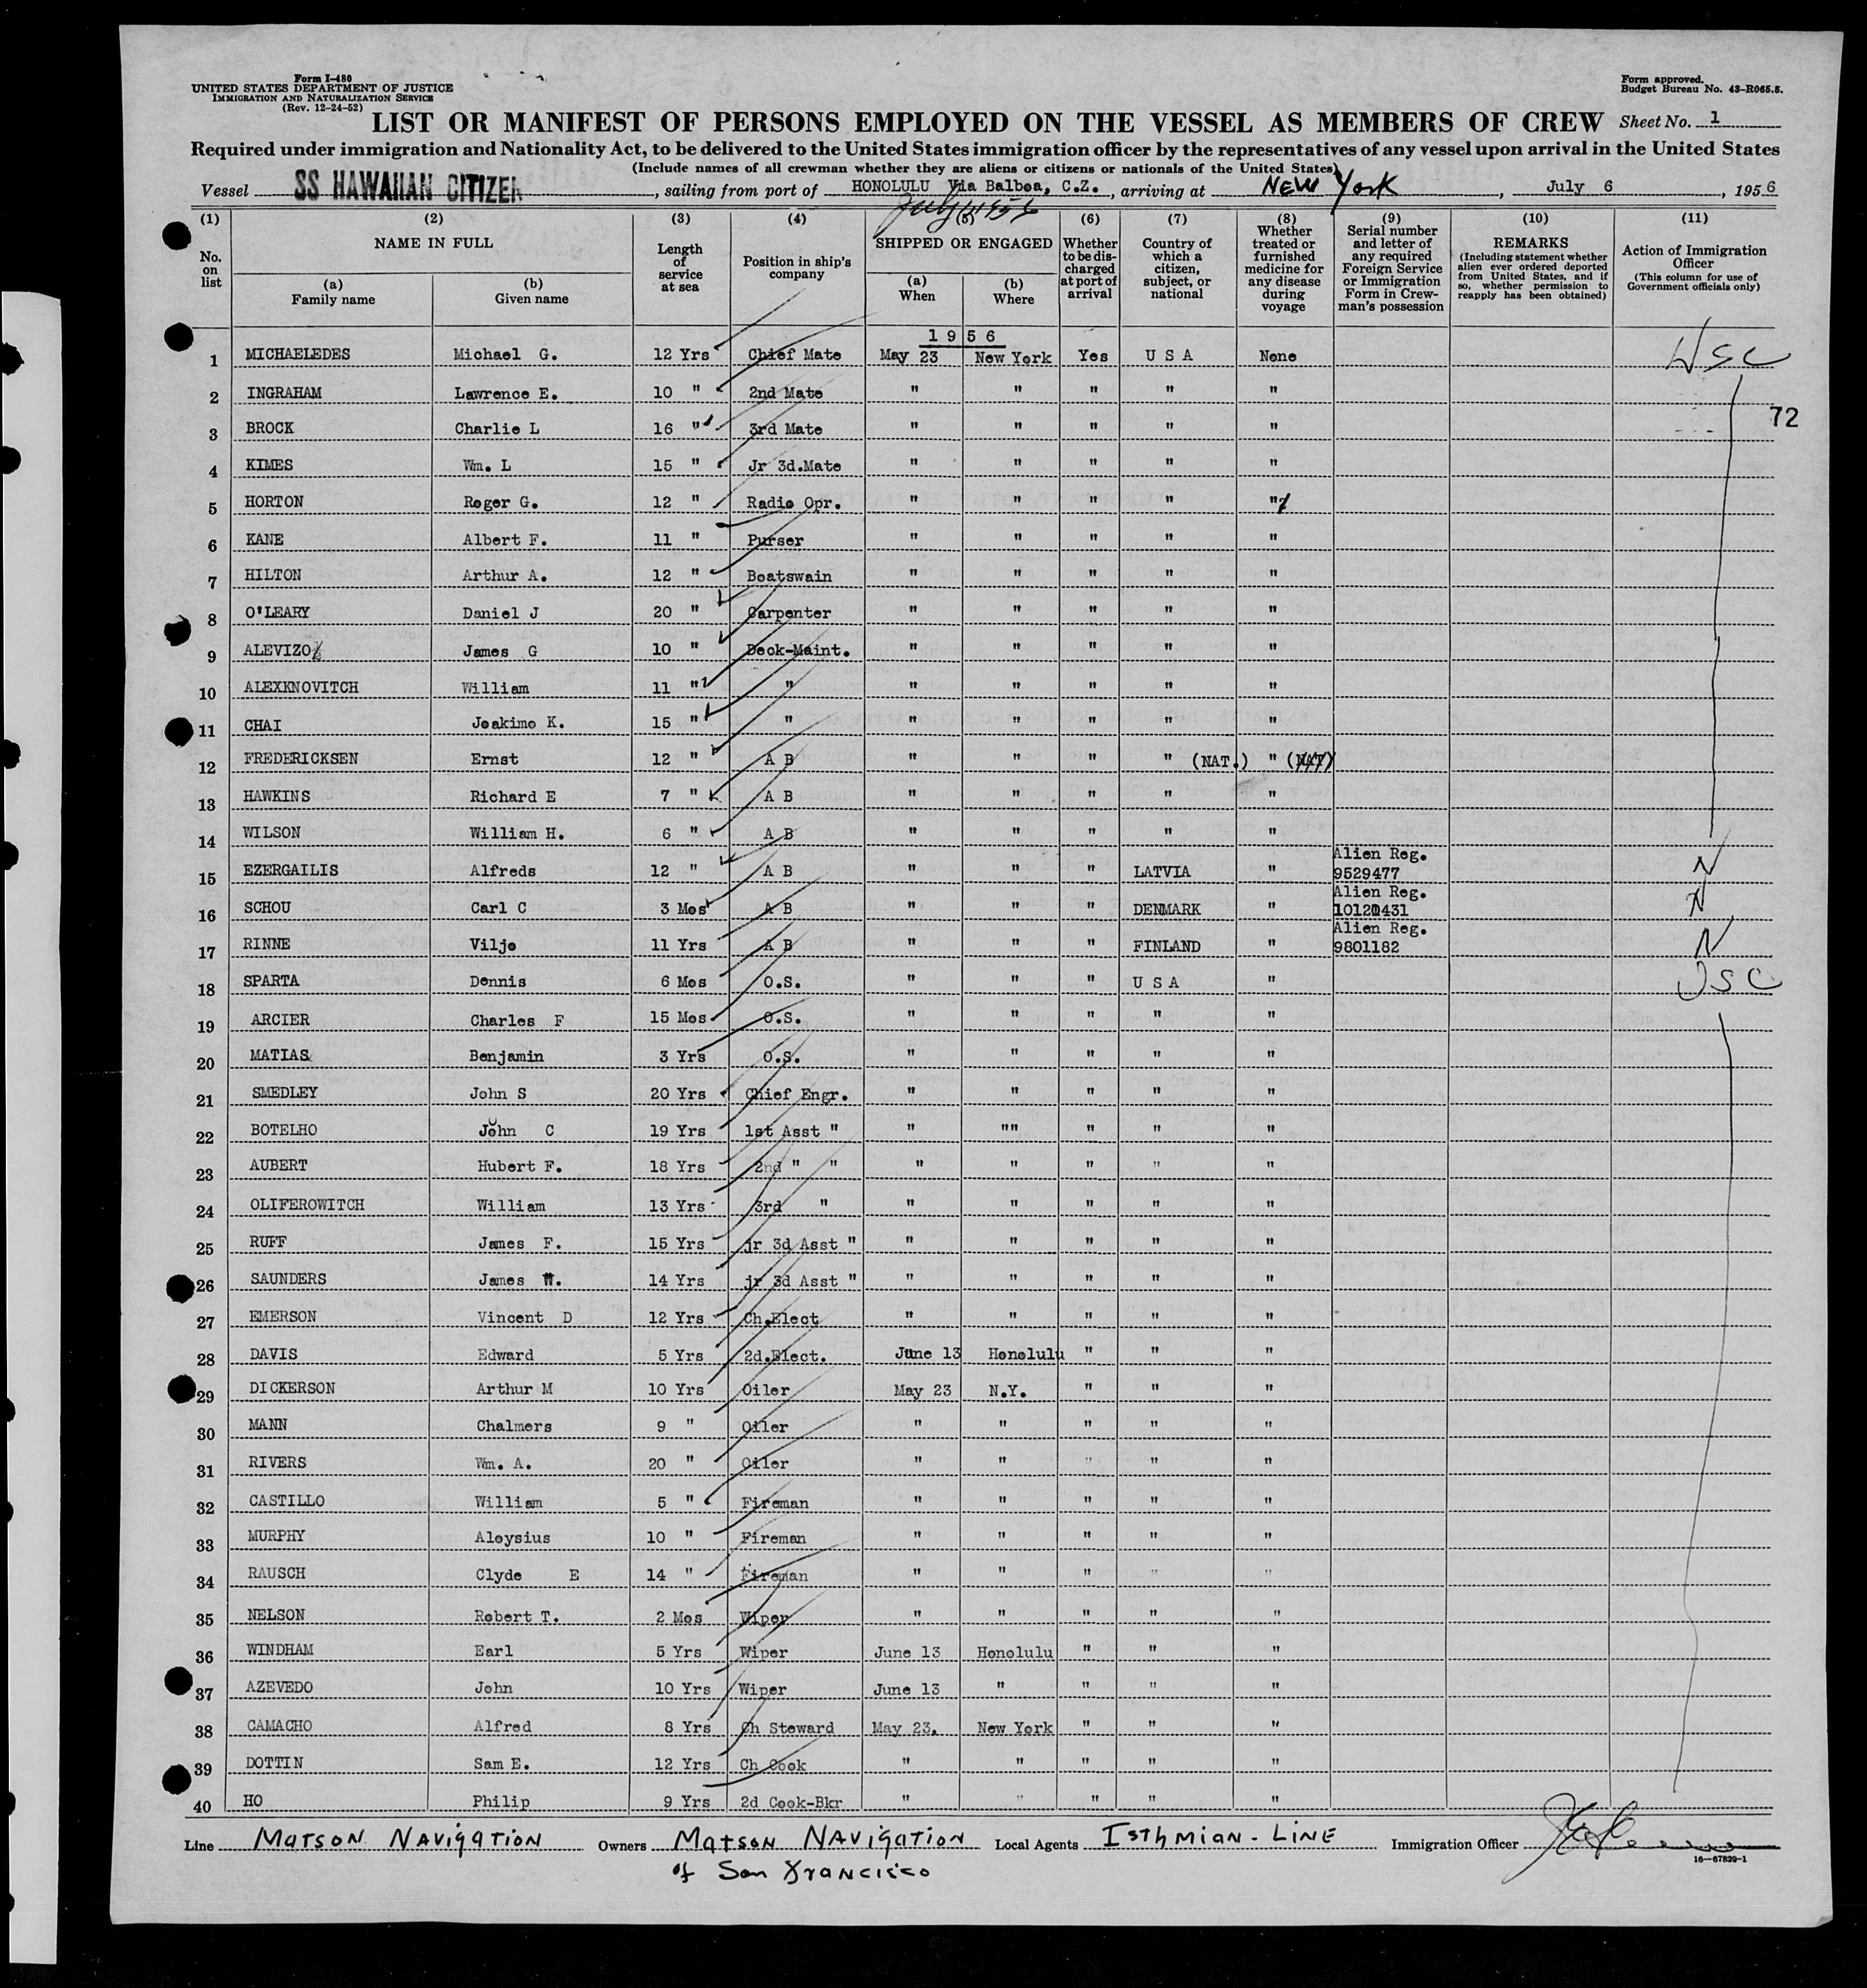 Form I-480
UNITED STATES DEPARTMENT OF JUSTICE
IMMIGRATION AND NATURALIZATION SERVICE
(Rev. 12-24-52)
Form approved.
Budget Bureau No. 43-R065.5.
LIST OR MANIFEST OF PERSONS EMPLOYED ON THE VESSEL AS MEMBERS OF CREW Sheet No. 1
Required under immigration and Nationality Act, to be delivered to the United States immigration officer by the representatives of any vessel upon arrival in the United States
(Include names of all crewman whether they are aliens or citizens or nationals of the United States)
Vessel SS HAWAIIAN CITIZEN, sailing from port of HONOLULU Via Balboa, C.Z., arriving at NEW York, July 6, 1956
(1) (2) (3) (4) (5) (6) (7) (8) (9) (10) (11)
No. on list
NAME IN FULL
(a) Family name
(b) Given name
Length of service at sea
Position in ship's company
SHIPPED OR ENGAGED
(a) When
(b) Where
Whether to be discharged at port of arrival
Country of which a citizen, subject, or national
Whether treated or furnished medicine for any disease during voyage
Serial number and letter of any required Foreign Service or Immigration Form in Crewman's possession
REMARKS
(Including statement whether alien ever ordered deported from United States, and if so, whether permission to reapply has been obtained)
Action of Immigration Officer
(This column for use of Government officials only)
1956
1 MICHAELEDES Michael G. 12 Yrs Chief Mate May 23 New York Yes U S A None USC
2 INGRAHAM Lawrence E. 10 " 2nd Mate " " " " "
72
3 BROCK Charlie L 16 " 3rd Mate " " " " "
4 KIMES Wm. L 15 " Jr 3d.Mate " " " " "
5 HORTON Roger G. 12 " Radio Opr. " " " " "
6 KANE Albert F. 11 " Purser " " " " "
7 HILTON Arthur A. 12 " Boatswain " " " " "
8 O'LEARY Daniel J 20 " Carpenter " " " " "
9 ALEVIZO James G 10 " Deck-Maint. " " " " "
10 ALEXKNOVITCH William 11 " " " " " " "
11 CHAI Joakimo K. 15 " " " " " " "
12 FREDERICKSEN Ernst 12 " A B " " " " (NAT.) " (NAT)
13 HAWKINS Richard E 7 " A B " " " " "
14 WILSON William H. 6 " A B " " " " "
15 EZERGAILIS Alfreds 12 " A B " " " LATVIA " Alien Reg. 9529477 N
16 SCHOU Carl C 3 Mos A B " " " DENMARK " Alien Reg. N
17 RINNE Viljo 11 Yrs A B " " " FINLAND " Alien Reg. 9801182 N
18 SPARTA Dennis 6 Mos O.S. " " " U S A " USC
19 ARCIER Charles F 15 Mos O.S. " " " " "
20 MATIAS Benjamin 3 Yrs O.S. " " " " "
21 SMEDLEY John S 20 Yrs Chief Engr. " " " " "
22 BOTELHO John C 19 Yrs 1st Asst " " "" " " "
23 AUBERT Hubert F. 18 Yrs 2nd " " " " " " "
24 OLIFEROWITCH William 13 Yrs 3rd " " " " " "
25 RUFF James F. 15 Yrs jr 3d Asst " " " " " "
26 SAUNDERS James W. 14 Yrs jr 3d Asst " " " " " "
27 EMERSON Vincent D 12 Yrs Ch.Elect " " " " "
28 DAVIS Edward 5 Yrs 2d.Elect. June 13 Honolulu " " "
29 DICKERSON Arthur M 10 Yrs Oiler May 23 N.Y. " " "
30 MANN Chalmers 9 " Oiler " " " " "
31 RIVERS Wm. A. 20 " Oiler " " " " "
32 CASTILLO William 5 " Fireman " " " " "
33 MURPHY Aloysius 10 " Fireman " " " " "
34 RAUSCH Clyde E 14 " Fireman " " " " "
35 NELSON Robert T. 2 Mos Wiper " " " " "
36 WINDHAM Earl 5 Yrs Wiper June 13 Honolulu " " "
37 AZEVEDO John 10 Yrs Wiper June 13 " " " "
38 CAMACHO Alfred 8 Yrs Ch Steward May 23. New York " " "
39 DOTTIN Sam E. 12 Yrs Ch Cook " " " " "
40 HO Philip 9 Yrs 2d Cook-Bkr " " " " "
Line MATSON NAVIGATION Owners MATSON NAVIGATION Local Agents ISTHMIAN-LINE Immigration Officer
of San Francisco
16-67829-1